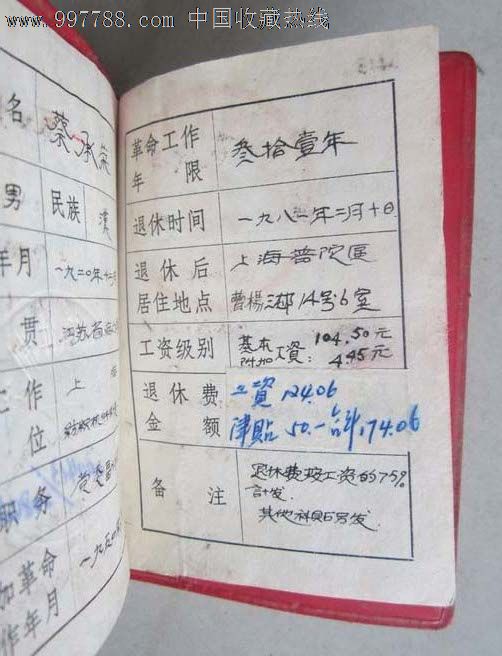 www.997788.com 中国收藏热线
名 蔡承
男 民族 漢
年月 一九二〇年十
贯 江苏省
工作 上
位
职务 党委副
加革命 一九五〇
作年月
革命工作
年 限 叁拾壹年
退休时间 一九八一年二月十日
退休后 上海普陀區
居住地点 曹楊 14号6室
工资级别 基本 104.50元
附加工資: 4.45元
退休费 工資 124.06
金额 津貼 50.一合計174.06
备注 退休费按工资的75%
計发.
其他补贴另发.